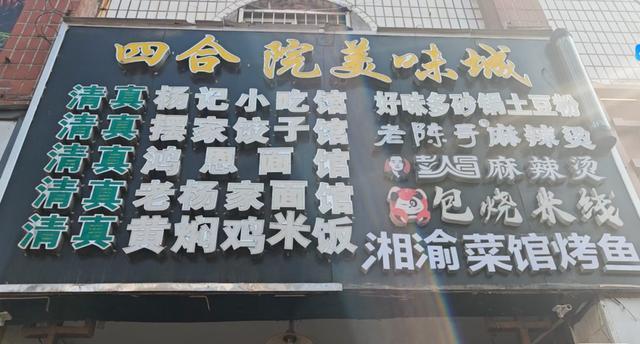 四合院美味城
清真 杨记小吃馆
清真 摆家饺子馆
清真 鸿恩面馆
清真 老杨家面馆
清真 黄焖鸡米饭
好味多砂锅土豆粉
老陈手麻辣烫
麻辣烫
包烧米线
湘渝菜馆烤鱼